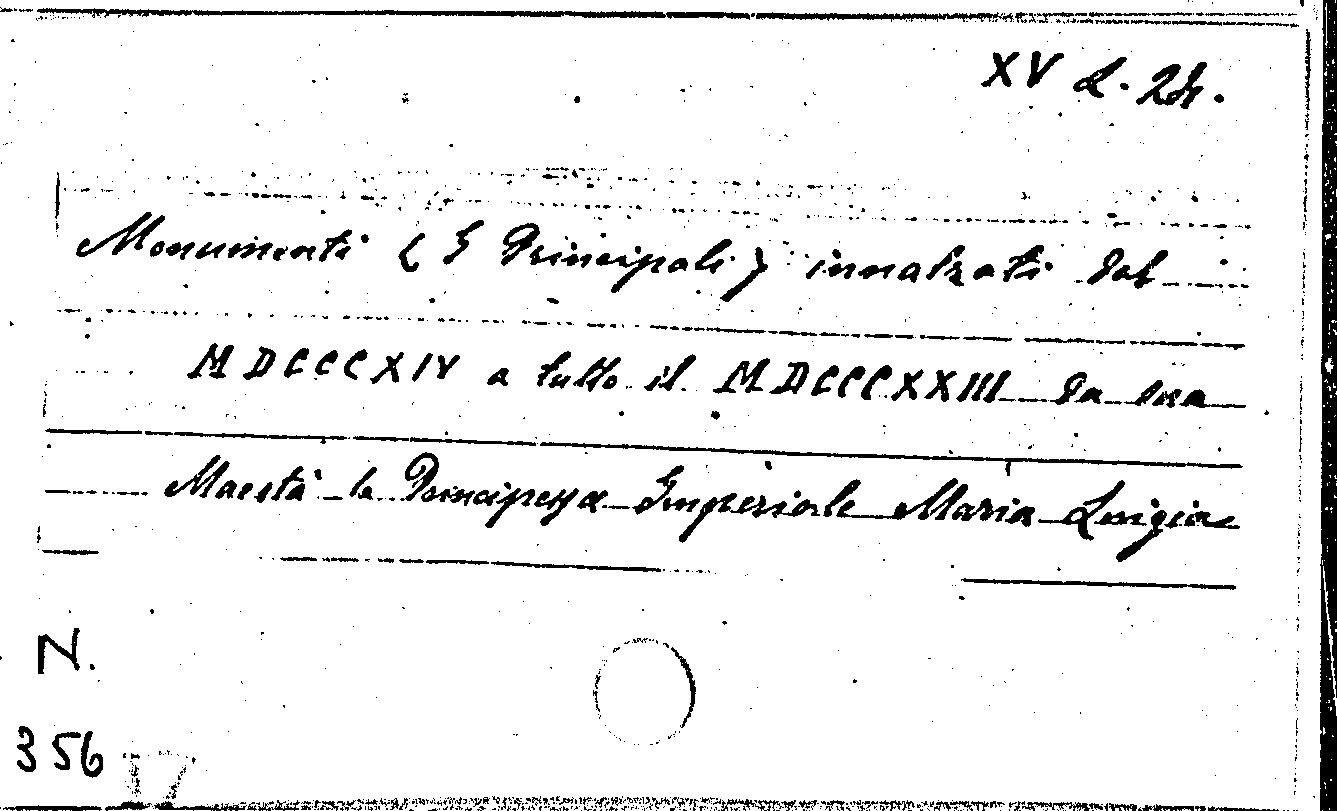 XV L. 24.
Monumenti (I Principali) innalzati dal
MDCCCXIV a tutto il MDCCCXXIII da sua
Maestà la Principessa Imperiale Maria Luigia
N.
356